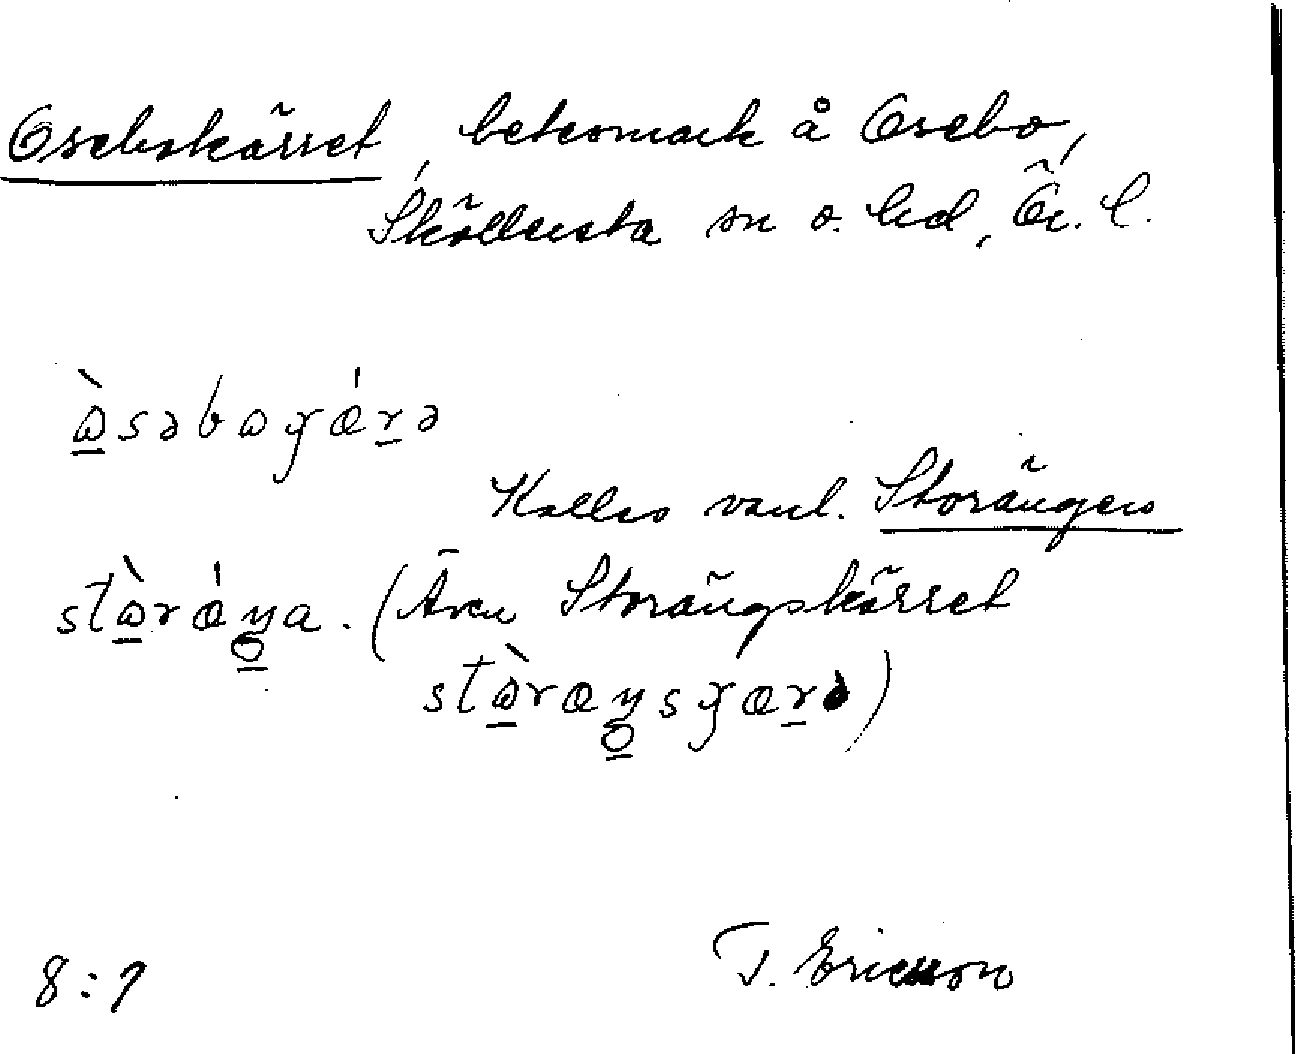 Osebokärret, betesmark å Osebo,
Sköllersta sn o. hd, Ör. l.
ὼsəbωɣǽrə
Kallas vanl. Storängen
stὼrǽŋa. (Även Storängskärret
stὼræŋsɣærə)
8:9
T. Ericsson